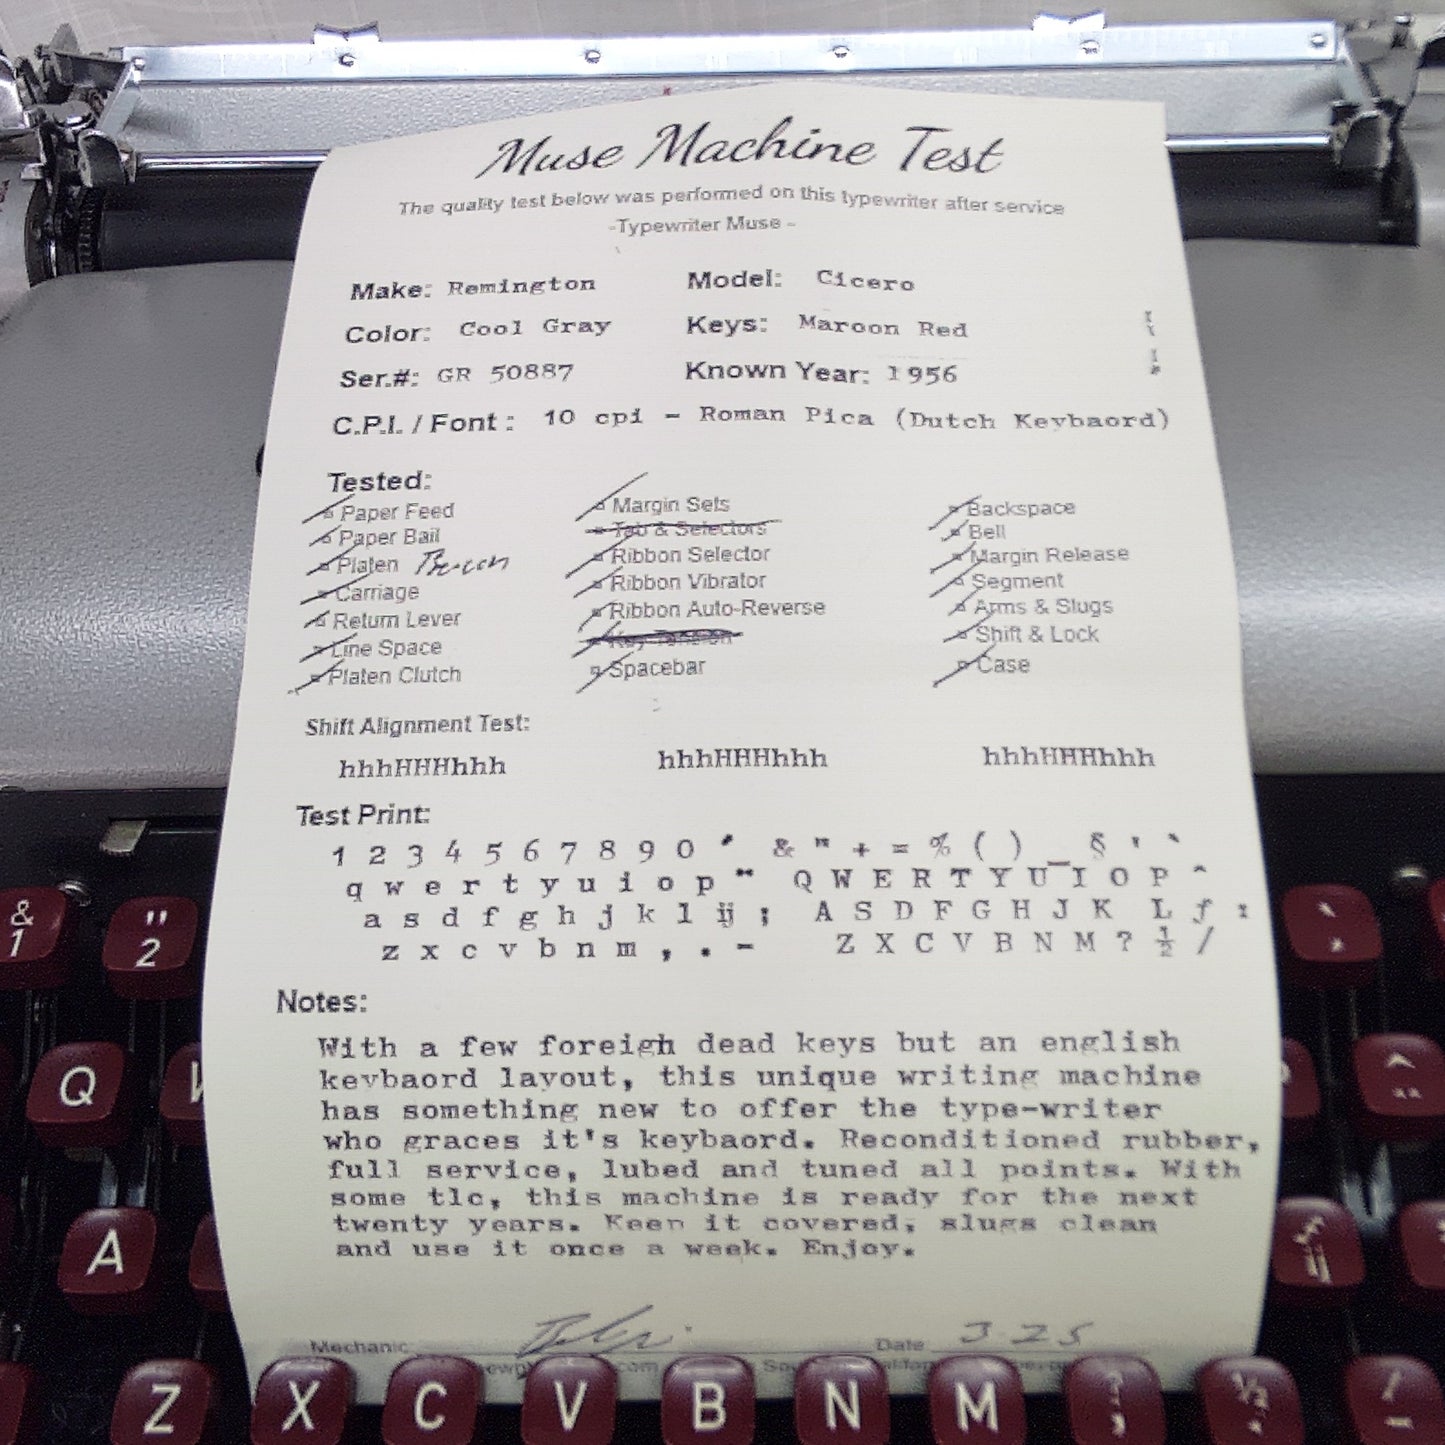 Muse Machine Test
The quality test below was performed on this typewriter after service
-Typewriter Muse -
Make: Remington Model: Cicero
Color: Cool Gray Keys: Maroon Red
Ser.#: GR 50887 Known Year: 1956
C.P.I. / Font : 10 cpi - Roman Pica (Dutch Keybaord)
Tested:
Paper Feed Margin Sets Backspace
Paper Bail Tab & Selectors Bell
Platen Ribbon Selector Margin Release
Carriage Ribbon Vibrator Segment
Return Lever Ribbon Auto-Reverse Arms & Slugs
Line Space Key Tension Shift & Lock
Platen Clutch Spacebar Case
Shift Alignment Test:
hhhHHHhhh hhhHHHhhh hhhHHHhhh
Test Print:
1 2 3 4 5 6 7 8 9 0 ´ & " + = % ( ) _ § ' `
q w e r t y u i o p ¨ Q W E R T Y U I O P ^
a s d f g h j k l ij ; A S D F G H J K L ƒ :
z x c v b n m , . - Z X C V B N M ? ½ /
Notes:
With a few foreigh dead keys but an english
keybaord layout, this unique writing machine
has something new to offer the type-writer
who graces it's keybaord. Reconditioned rubber,
full service, lubed and tuned all points. With
some tlc, this machine is ready for the next
twenty years. Keep it covered, slugs clean
and use it once a week. Enjoy.
Mechanic: Date 3-25
& 1 " 2
Q
A
Z X C V B N M